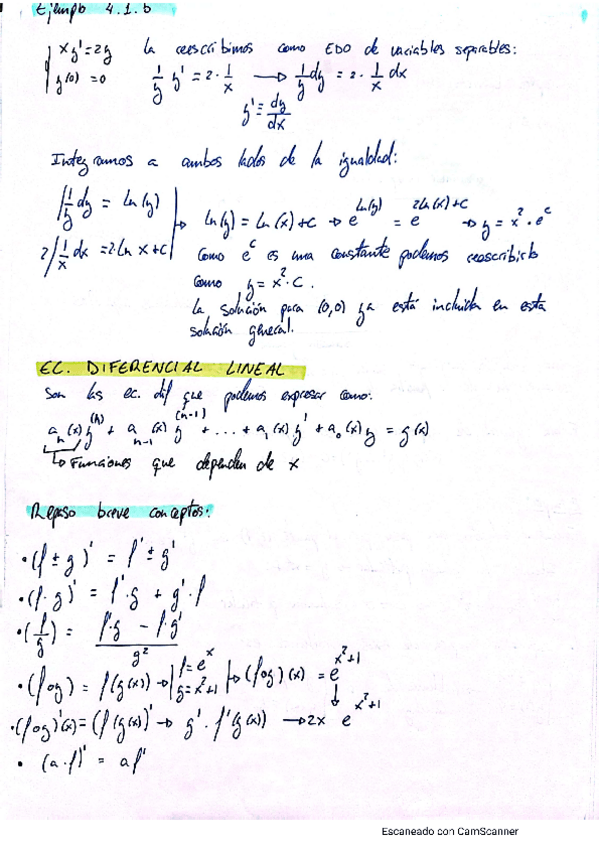 Ejemplo 4.1.b
xy' = 2y
y(0) = 0
la reescribimos como EDO de variables separables:
1/y y' = 2 · 1/x → 1/y dy = 2 · 1/x dx
y' = dy/dx
Integramos a ambos lados de la igualdad:
∫ 1/y dy = Ln(y)
2∫ 1/x dx = 2·Ln x + C
Ln(y) = Ln(x) + C → e^Ln(y) = e^2Ln(x)+C → y = x² · e^c
Como e^c es una constante podemos reescribirlo
como y = x² · C.
la solución para (0,0) ya está incluida en esta
solución general.
EC. DIFERENCIAL LINEAL
Son las ec. dif que podemos expresar como:
aₙ(x) y^(n) + aₙ₋₁(x) y^(n-1) + ... + a₁(x) y' + a₀(x) y = g(x)
↳ Funciones que dependen de x
Repaso breve conceptos:
• (f ± g)' = f' ± g'
• (f · g)' = f' · g + g' · f
• (f/g)' = (f'·g - f·g')/g²
• (f o g) = f(g(x)) → | f = e^x | g = x²+1 | → (f o g)(x) = e^x²+1
• (f o g)'(x) = (f(g(x))' → g' · f'(g(x)) → 2x e^x²+1
• (a · f)' = a f'
Escaneado con CamScanner